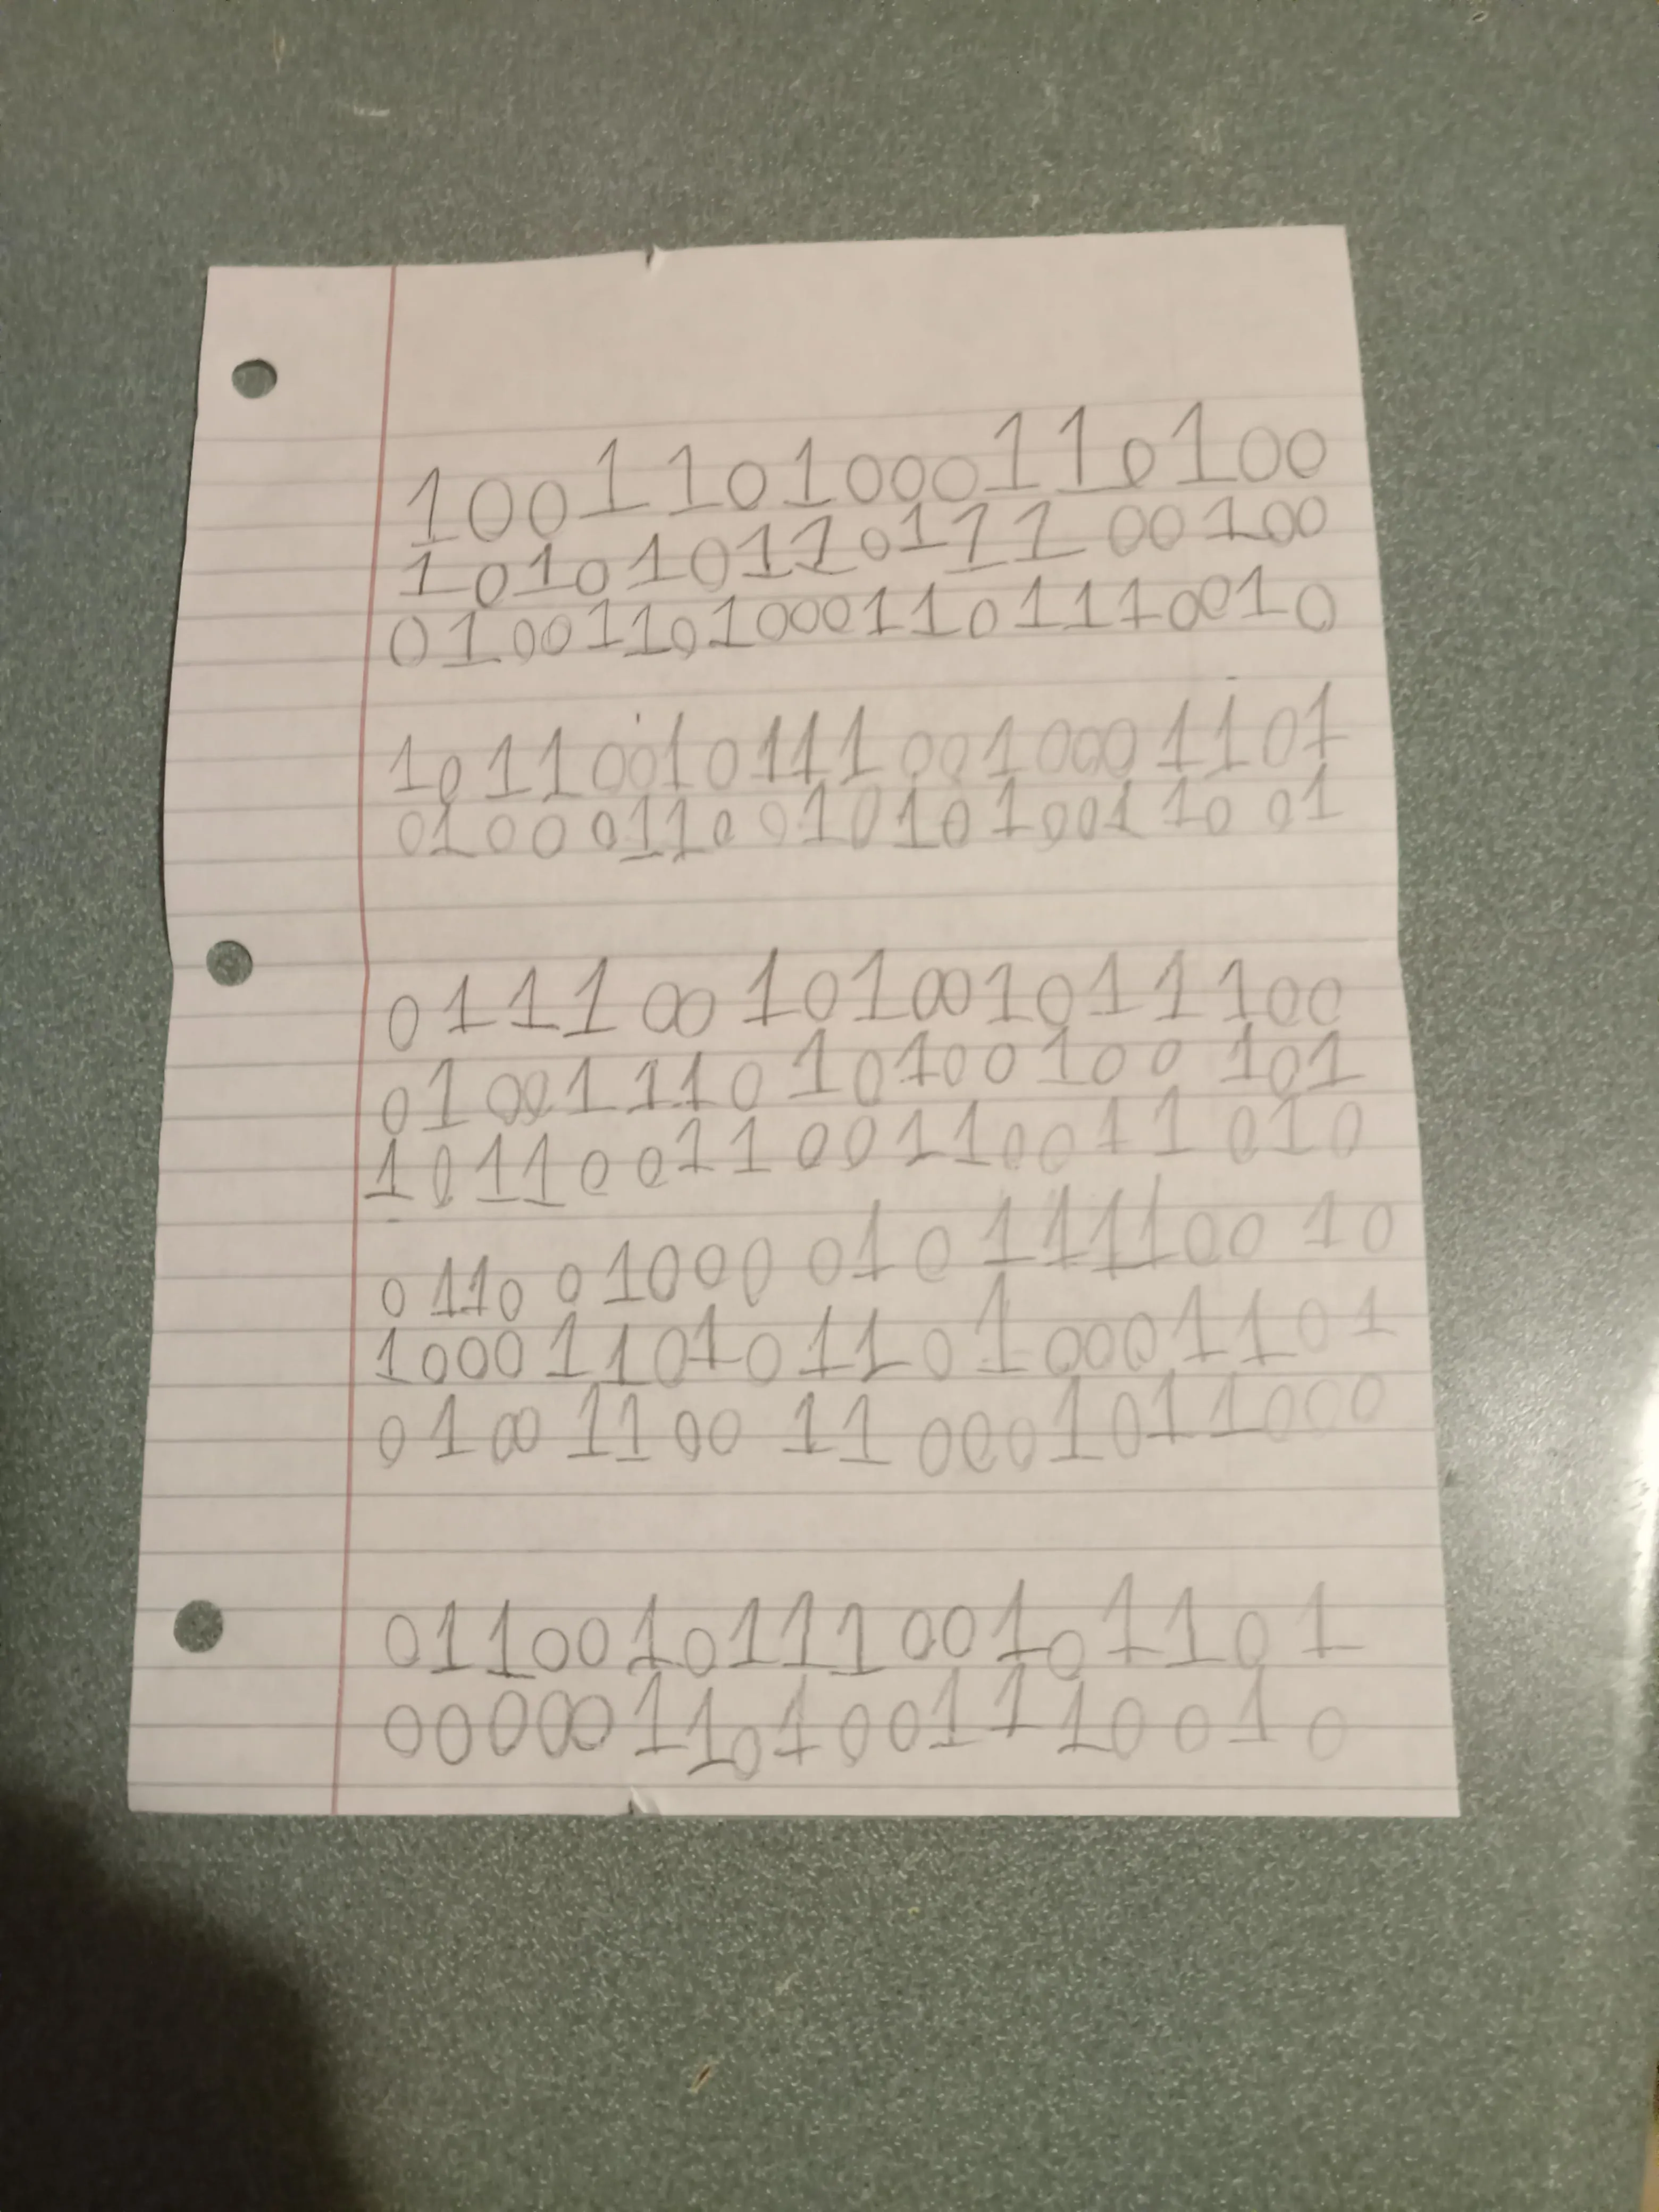 1001101000110100
101010110111 00100
010011010001101110010
101100101110010001101
010001100101010011001
011100 101001011100
01001110 10100100 101
1011001100110011010
0110 01000 010 111100 10
10001101011010001101
0100 1100 11 0001011000
011001011100101101
000001101001110010